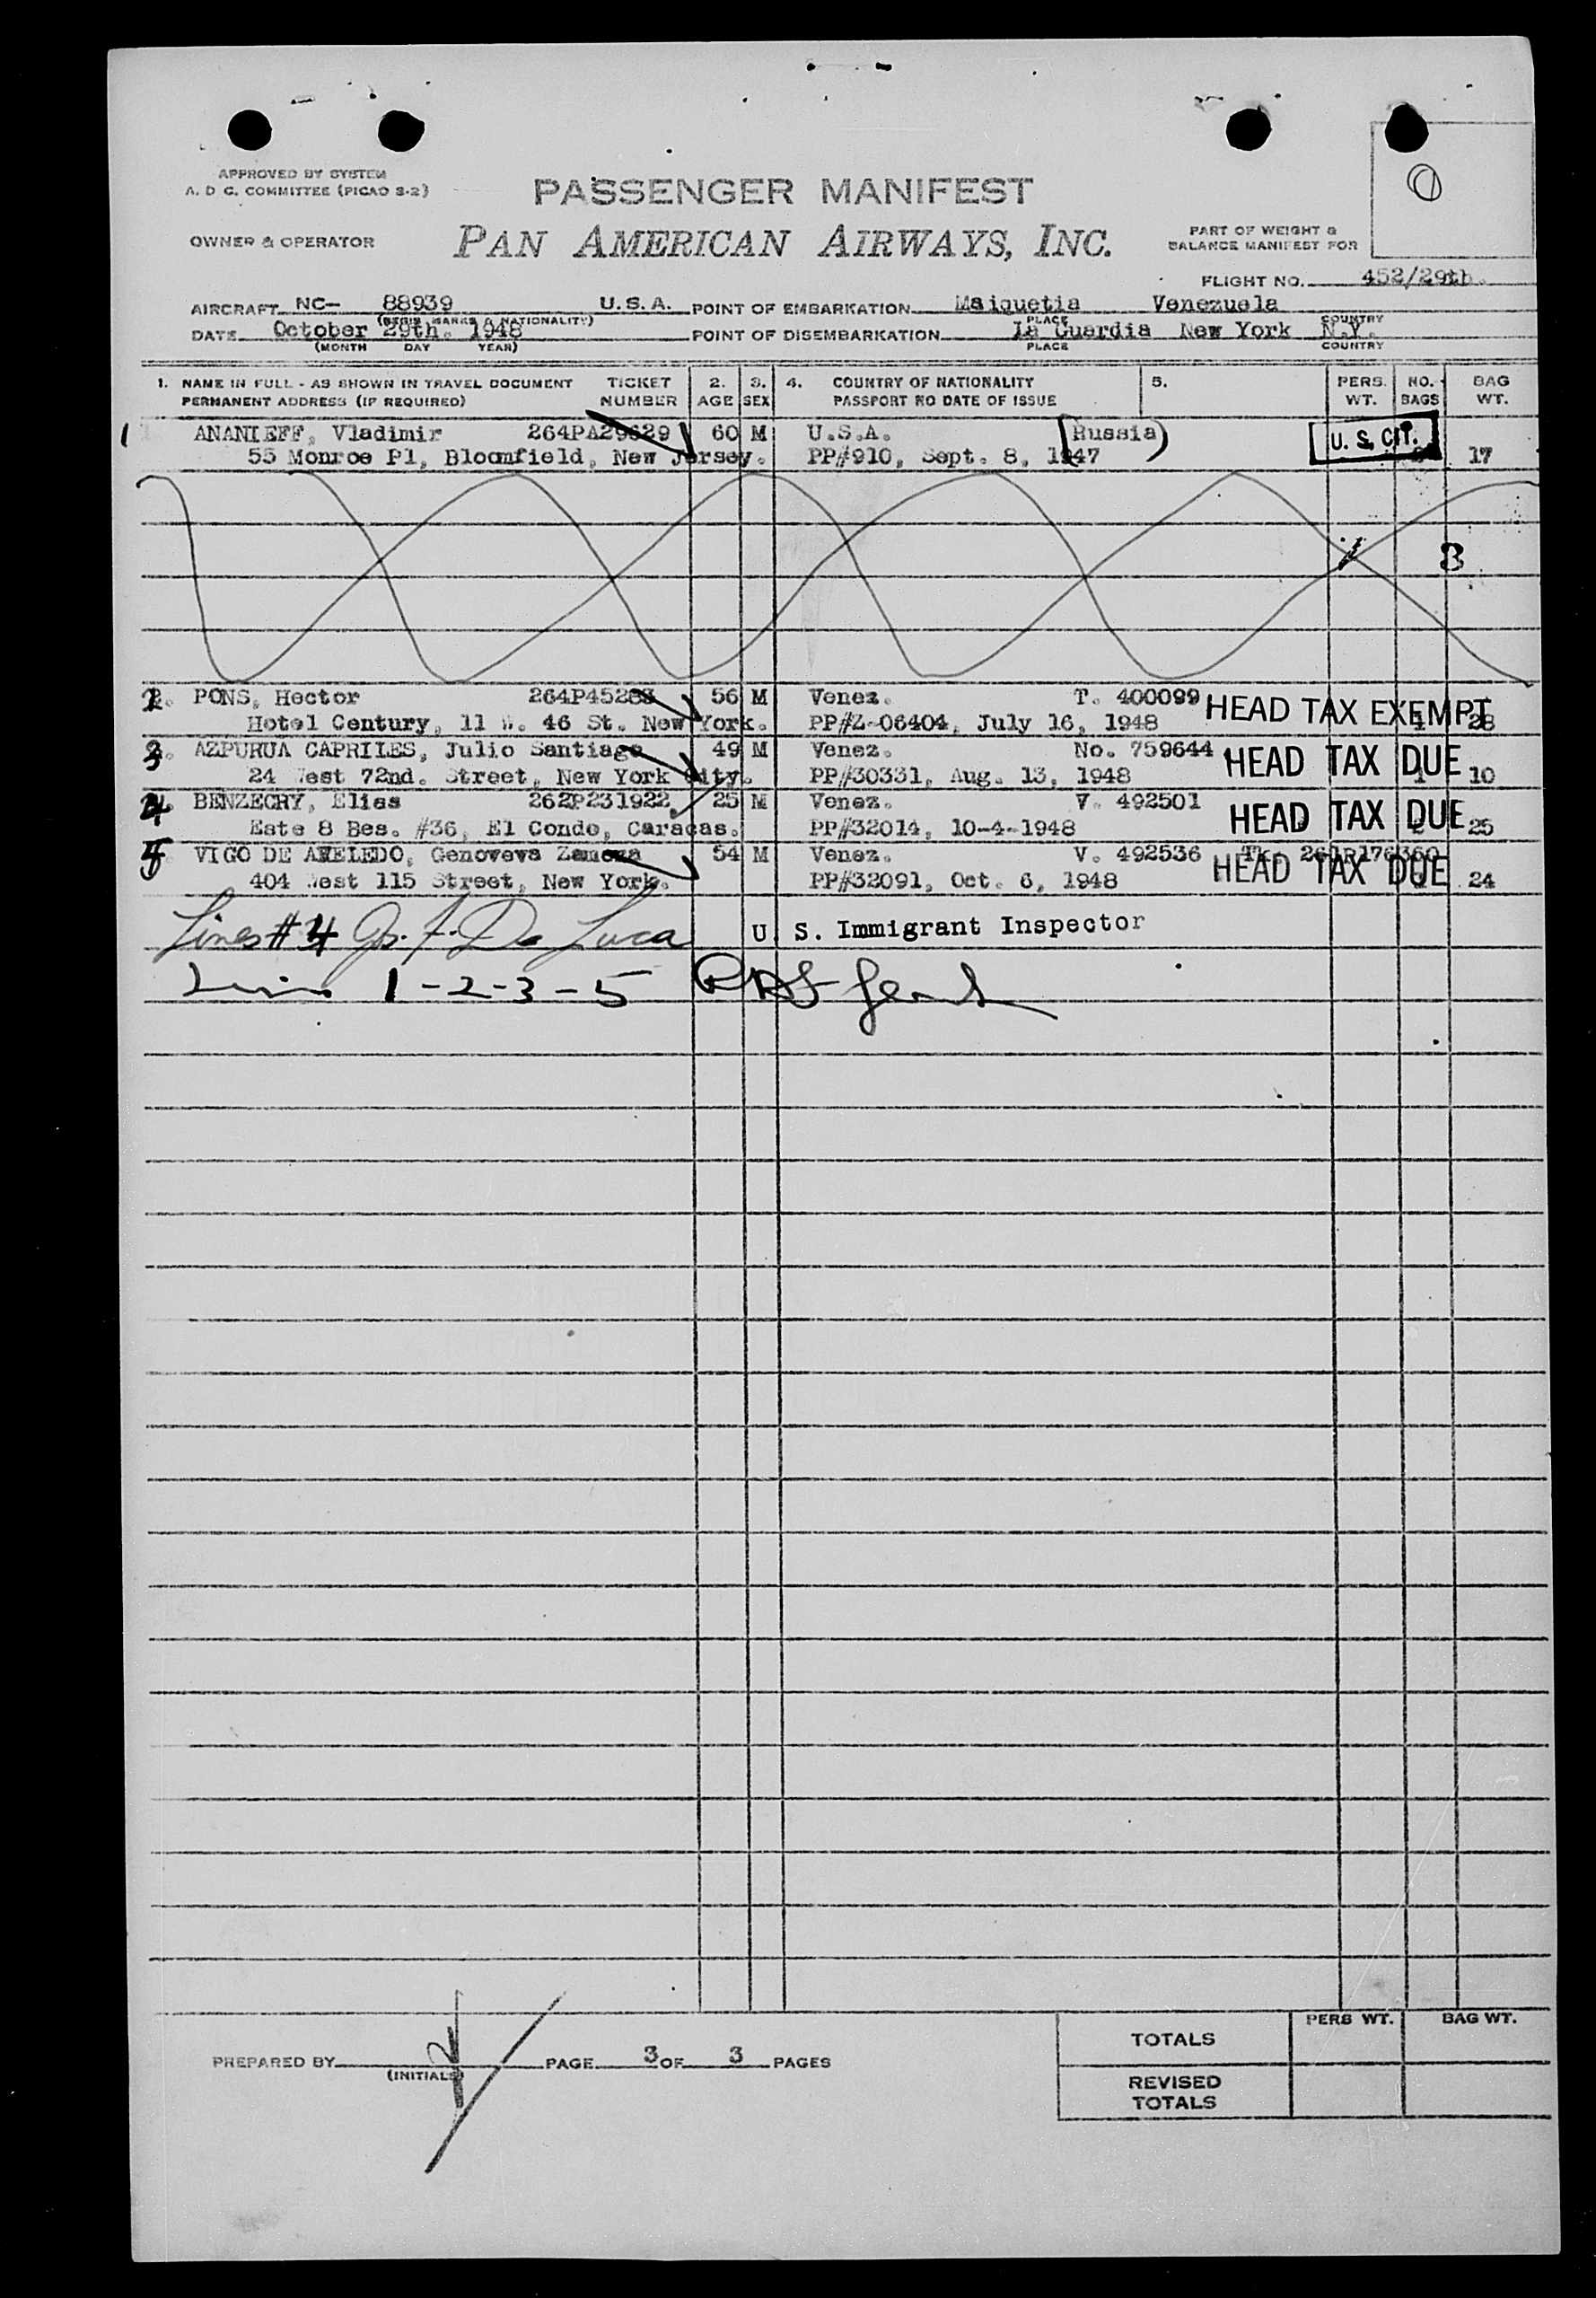 APPROVED BY SYSTEM
A. D C. COMMITTEE (PICAO S-2)
PASSENGER MANIFEST
OWNER & OPERATOR
PAN AMERICAN AIRWAYS, INC.
PART OF WEIGHT &
BALANCE MANIFEST FOR
FLIGHT NO. 452/29th.
AIRCRAFT NC- 88939 U.S.A. POINT OF EMBARKATION Maiquetia Venezuela
(REGIS. MARKS & NATIONALITY) PLACE COUNTRY
DATE October 29th. 1948 POINT OF DISEMBARKATION La Guardia New York N.Y.
(MONTH DAY YEAR) PLACE COUNTRY
1. NAME IN FULL - AS SHOWN IN TRAVEL DOCUMENT TICKET 2. 3. 4. COUNTRY OF NATIONALITY 5. PERS. NO. BAG
PERMANENT ADDRESS (IF REQUIRED) NUMBER AGE SEX PASSPORT NO DATE OF ISSUE WT. BAGS WT.
1 ANANIEFF, Vladimir 264PA29629 60 M U.S.A. (Russia) U. S. CIT.
55 Monroe Pl, Bloomfield, New Jersey. PP#910, Sept. 8, 1947 17
B
2. PONS, Hector 56 M Venez. T. 400099 HEAD TAX EXEMPT
Hotel Century, 11 W. 46 St. New York. PP#Z-06404, July 16, 1948 1 28
3. AZPURUA CAPRILES, Julio Santiago 49 M Venez. No. 759644 HEAD TAX DUE
24 West 72nd. Street, New York City. PP#30331, Aug. 13, 1948 1 10
4. BENZECRY, Elias 262P231922 25 M Venez. V. 492501 HEAD TAX DUE
Este 8 Bes. #36, El Conde, Caracas. PP#32014, 10-4-1948 25
5 VIGO DE AVELEDO, Genoveva 54 M Venez. V. 492536 Tk. 261P176360
404 West 115 Street, New York. PP#32091, Oct. 6, 1948 HEAD TAX DUE 24
Lines #4 De Luca U. S. Immigrant Inspector
Lines 1-2-3-5
PREPARED BY PAGE 3 OF 3 PAGES
(INITIALS)
PERS WT. BAG WT.
TOTALS
REVISED
TOTALS